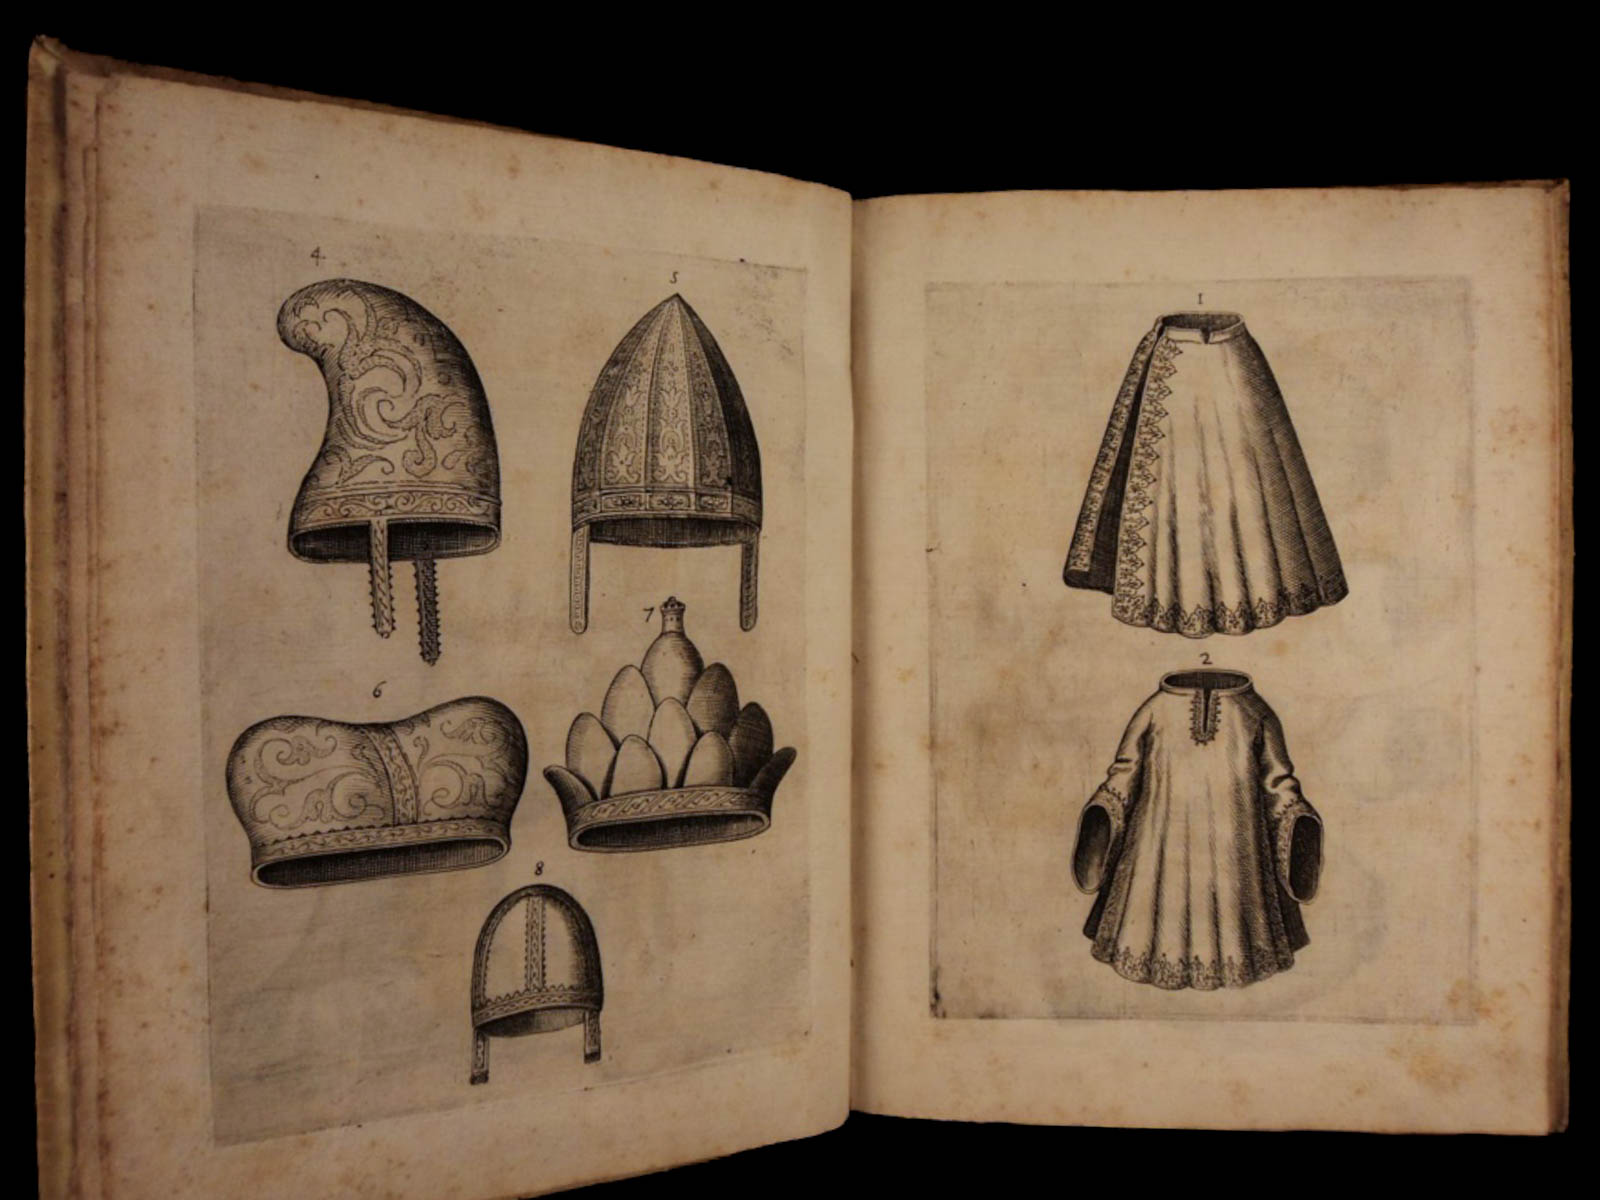 4
5
6
7
8
1
2